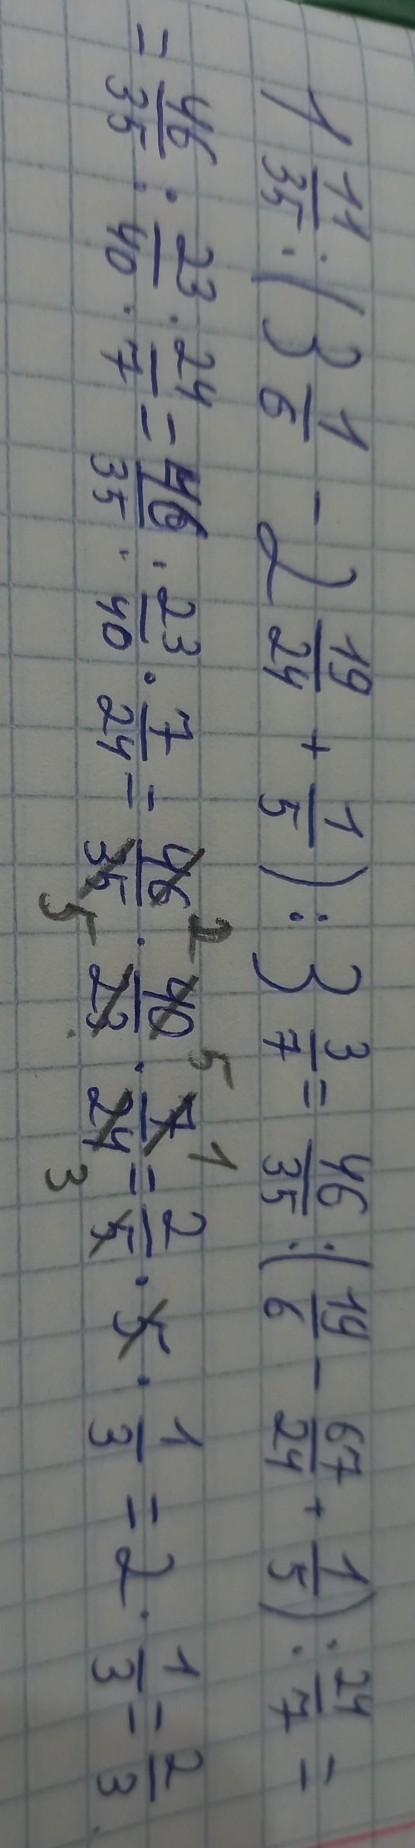 1 11/35 : (3 1/6 - 2 19/24 + 1/5) : 3 3/7 = 46/35 : (19/6 - 67/24 + 1/5) : 24/7 =
= 46/35 : 23/40 : 24/7 = 46/35 : 23/40 · 7/24 = 46/35 · 40/23 · 7/24 = 2/5 · 5 · 1/3 = 2 · 1/3 = 2/3
2 5 1
5 3